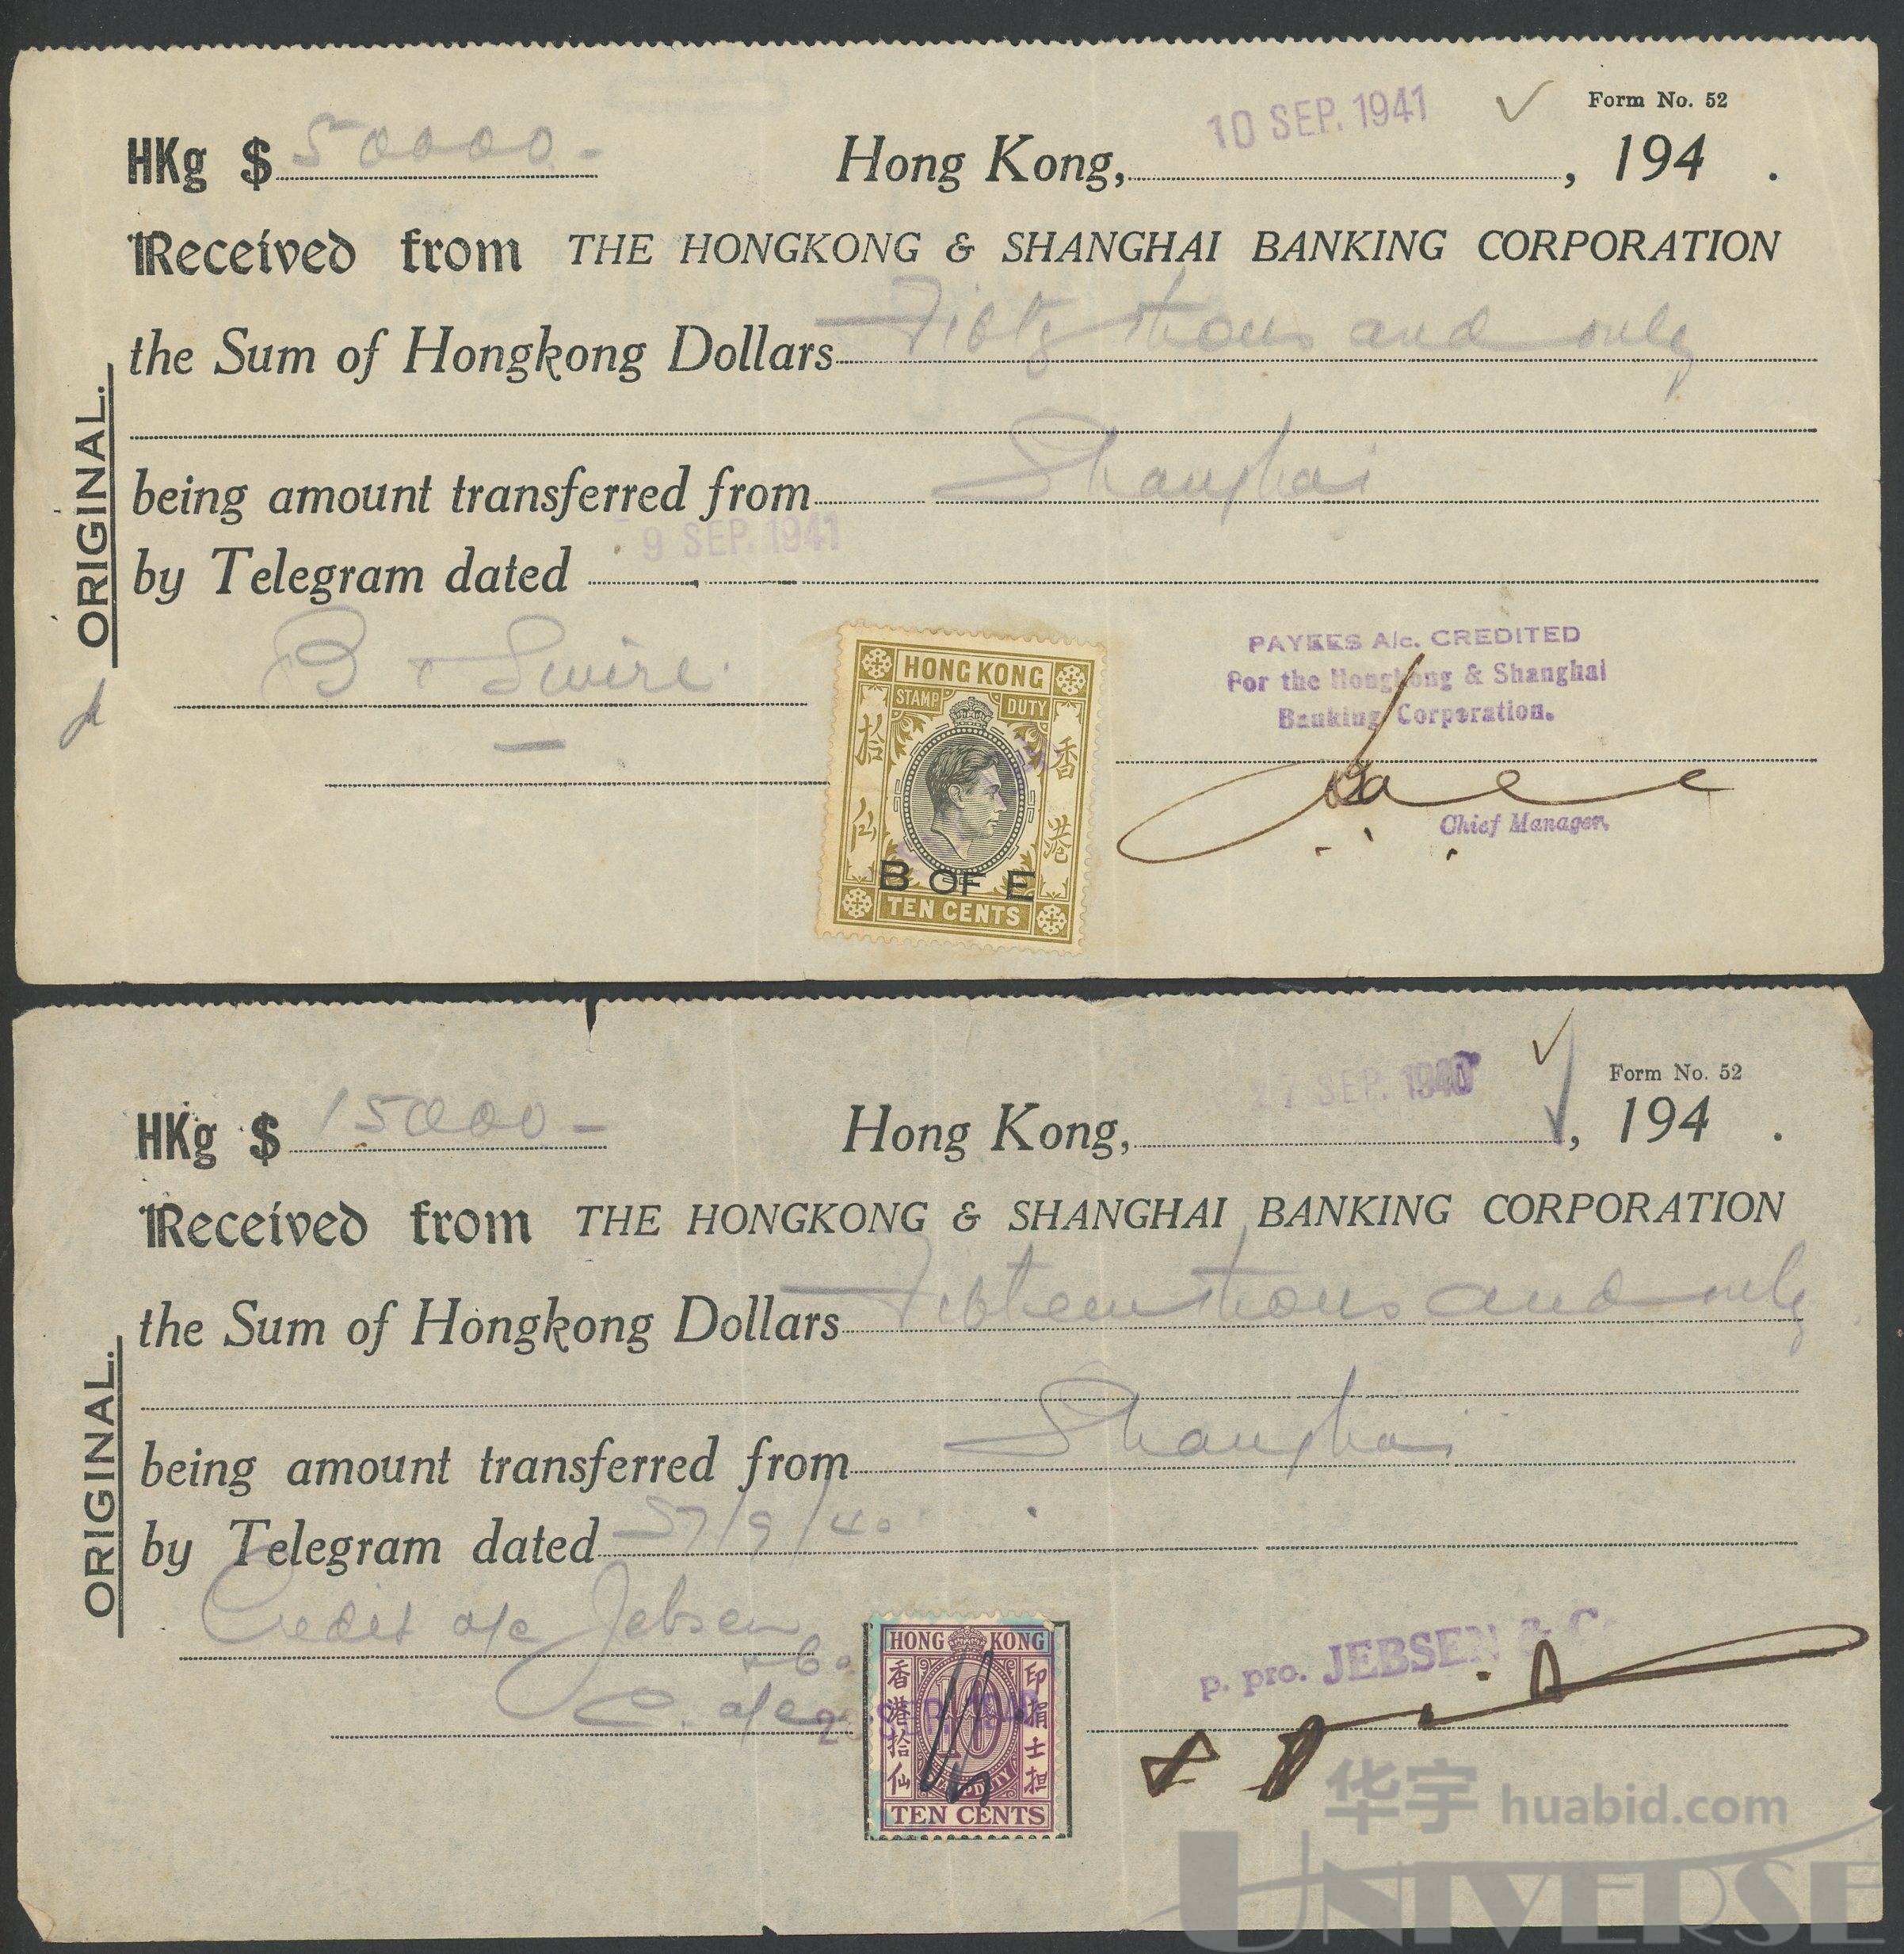 10 SEP. 1941
Form No. 52
HKg $ 50000.-
Hong Kong, , 194 .
Received from THE HONGKONG & SHANGHAI BANKING CORPORATION
the Sum of Hongkong Dollars Fifty thousand only
being amount transferred from Shanghai
9 SEP. 1941
by Telegram dated
ORIGINAL.
B & Swire.
PAYEES A/c. CREDITED
For the Hongkong & Shanghai
Banking Corporation.
Chief Manager.
HONG KONG
STAMP DUTY
拾仙
香港
B OF E
TEN CENTS
27 SEP. 1940
Form No. 52
HKg $ 15000-
Hong Kong, , 194 .
Received from THE HONGKONG & SHANGHAI BANKING CORPORATION
the Sum of Hongkong Dollars Fifteen thousand only
being amount transferred from Shanghai
by Telegram dated 27/9/40
ORIGINAL.
Credit a/c Jebsen
& Co
p. pro. JEBSEN & Co
HONG KONG
香港拾仙
印捐士担
10
TEN CENTS
华宇 huabid.com
UNIVERSE